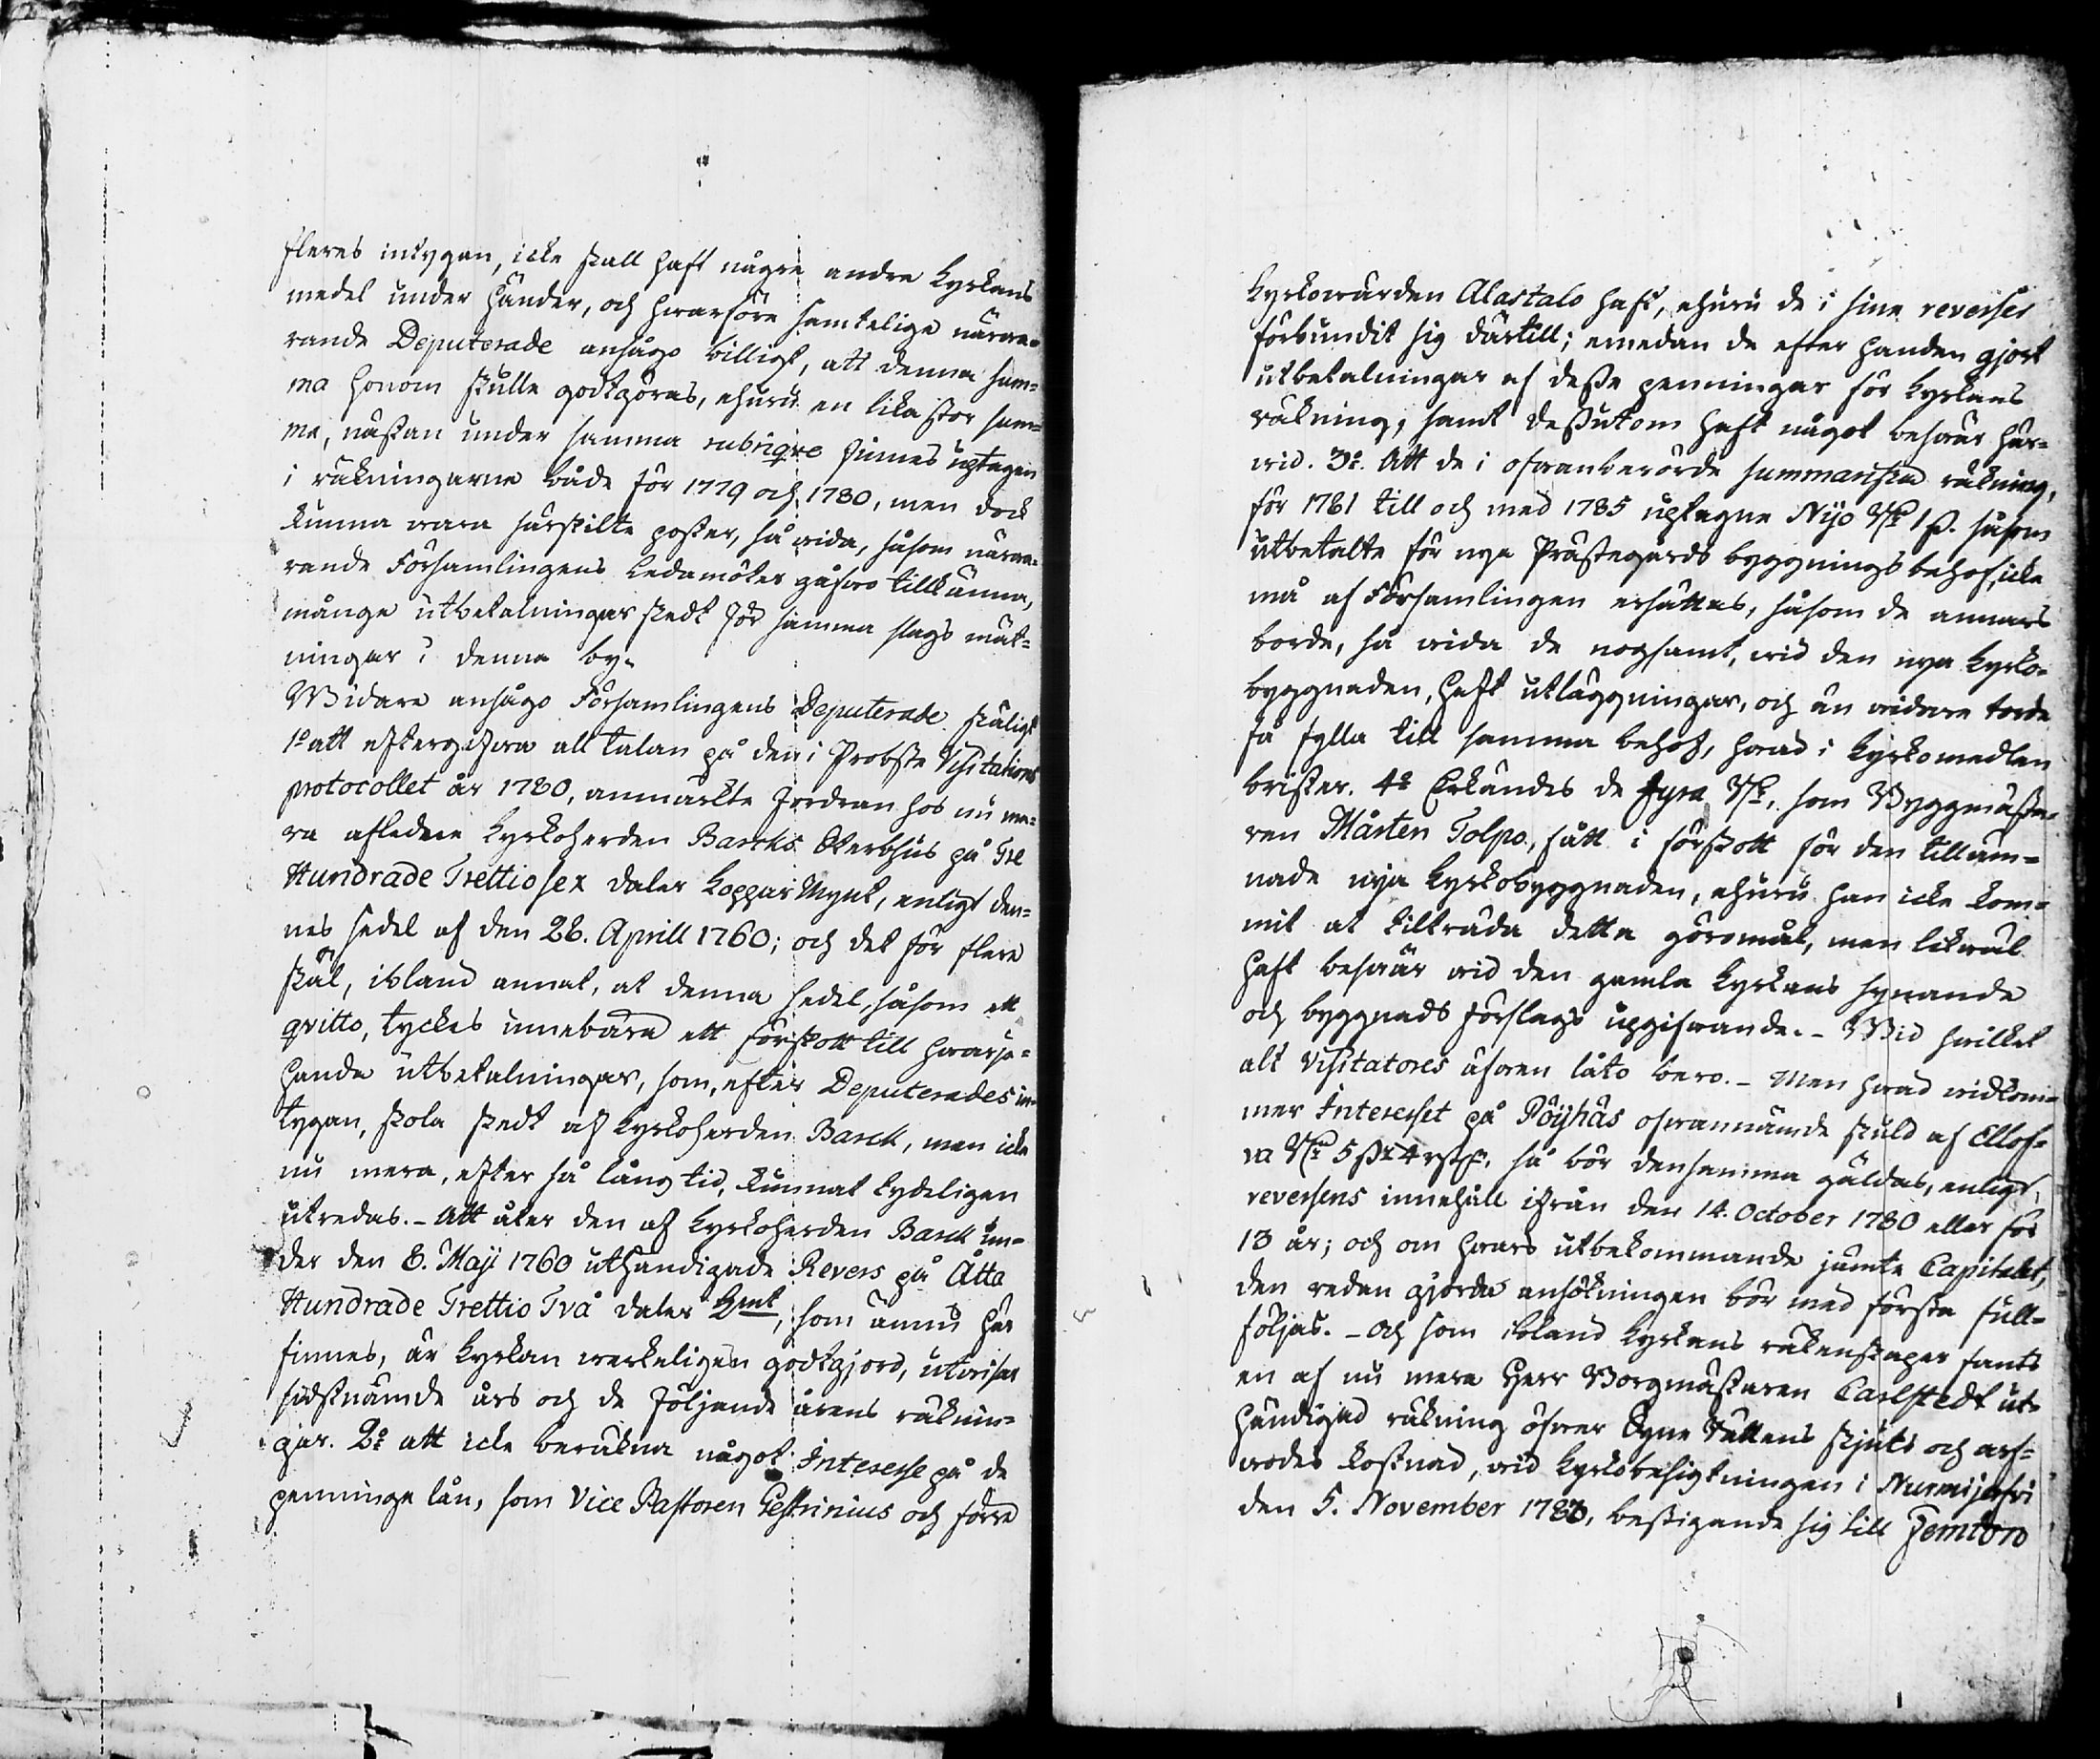 fleres intygan, icke skall haft någre andre Kyrkans
medel under händer, och hvarföre samtelige närwa-
rande Deputerade ansågo billigt, att denna sum-
ma honom skulle godtgöras, ehuru en lika stor sum-
ma, nästan under samma rubrique finnes uptagen
i räkningarne både för 1779 och 1780, men dock
kunna wara särskilte poster, så wida, såsom närwa-
rande Församlingens Ledamöter gåfwo tillkänna,
månge utbetalningar skedt för samma slags mät-
ningar i denna by.
Widare ansågo Församlingens Deputerade skäligt
1º att eftergifwa all talan på den i Probste Visitations
protocollet år 1780, anmärkte fordran hos nu me-
ra afledne Kyrkoherden Barcks Sterbhus på Tre
Hundrade Trettiosex daler Koppar Mynt, enligt den-
nes sedel af den 28. Aprill 1760; och det för flere
skäl, ibland annat, at denna sedel, såsom ett
qvitto, tyckes innebära ett förskott till hwarje-
handa utbetalningar, som, efter Deputerades in-
tygan, skola skedt af Kyrkoherden Barck, men icke
nu mera, efter så lång tid, kunnat tydeligen
utredas. - Att åter den af Kyrkoherden Barck un-
der den 8. Maji 1760 uthandigade Revers på Åtta
Hundrade Trettio Två daler Kmt, som ännu här
finnes, är Kyrkan werkeligen godtgjord, utwisar
sidstnämde års och de följande årens räknin-
gar. 2º att icke beräkna något Interesse på de
penninge lån, som Vice Pastoren Gestrinius och förre
Kyrkowärden Alastalo haft, ehuru de i sine reverser
förbundit sig därtill; emedan de efter handen gjort
utbetalningar af desse penningar för Kyrkans
räkning, samt dessutom haft något beswär här-
wid. 3º. Att de i ofwanberörde summariska räkning,
för 1781 till och med 1785 uptagne Nijo Rd 1 s. såsom
utbetalte för nya Prästegårds byggnings behof, icke
må af Församlingen ersättas, såsom de annars
borde, så wida de nogsamt, wid den nya Kyrko-
byggnaden, haft utläggningar, och än widare torde
få fylla till samma behof, hwad i Kyrkomedlen
brister. 4º Erkändes de fyra Rd, som Byggmästa-
ren Mårten Tolpo, fått i förskott för den tilläm-
nade nya Kyrkobyggnaden, ehuru han icke kom-
mit at tillträda detta göromål, men likwäl
haft beswär wid den gamla Kyrkans synande
och byggnads förslags upgifwande. - Wid hwilket
alt Visitatores äfwen låto bero. - Men hwad widkom-
mer Interesset på Pöyhäs ofwannämde skuld af Ellof-
va Rd 5 s 4 rst, så bör densamma gäldas, enligt
reversens innehåll ifrån den 14. October 1780 eller för
13 år; och om hwars utbekommande jämte Capitalet,
den redan gjorde ansökningen bör med första full-
följas. - Och som ibland Kyrkans räkenskaper fants
en af nu mera Herr Borgmästaren Carlstedt ut-
händigad räkning öfwer Syne Rättens skjuts och arf-
wodes kostnad, wid Kyrkobesigtningen i Nurmijerfvi
den 5. November 1783, bestigande sig till Femton